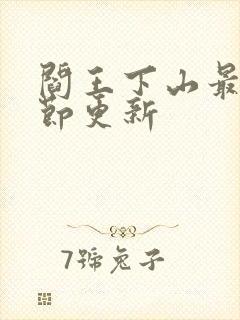 閻王下山最
節更新
7號兔子